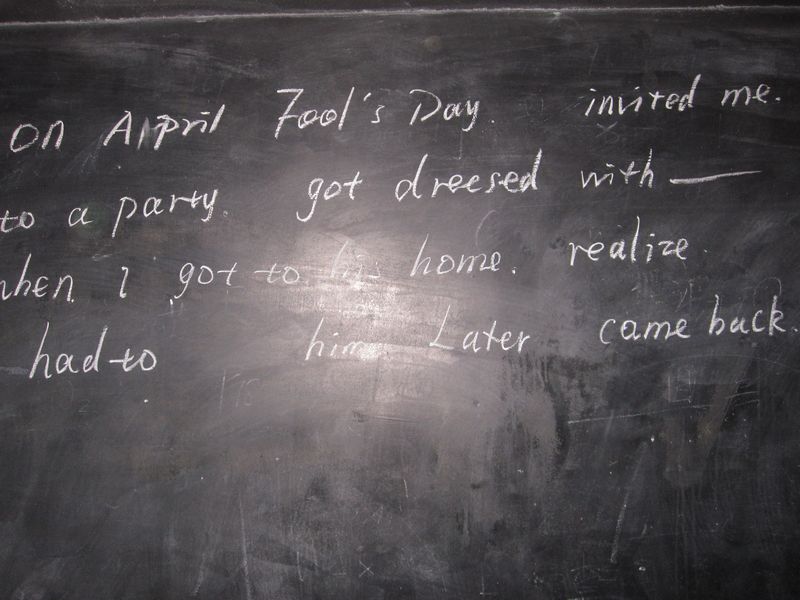 on April Fool's Day. invited me.
to a party. got dreesed with —
when I got to his home. realize.
had to him. Later came back.